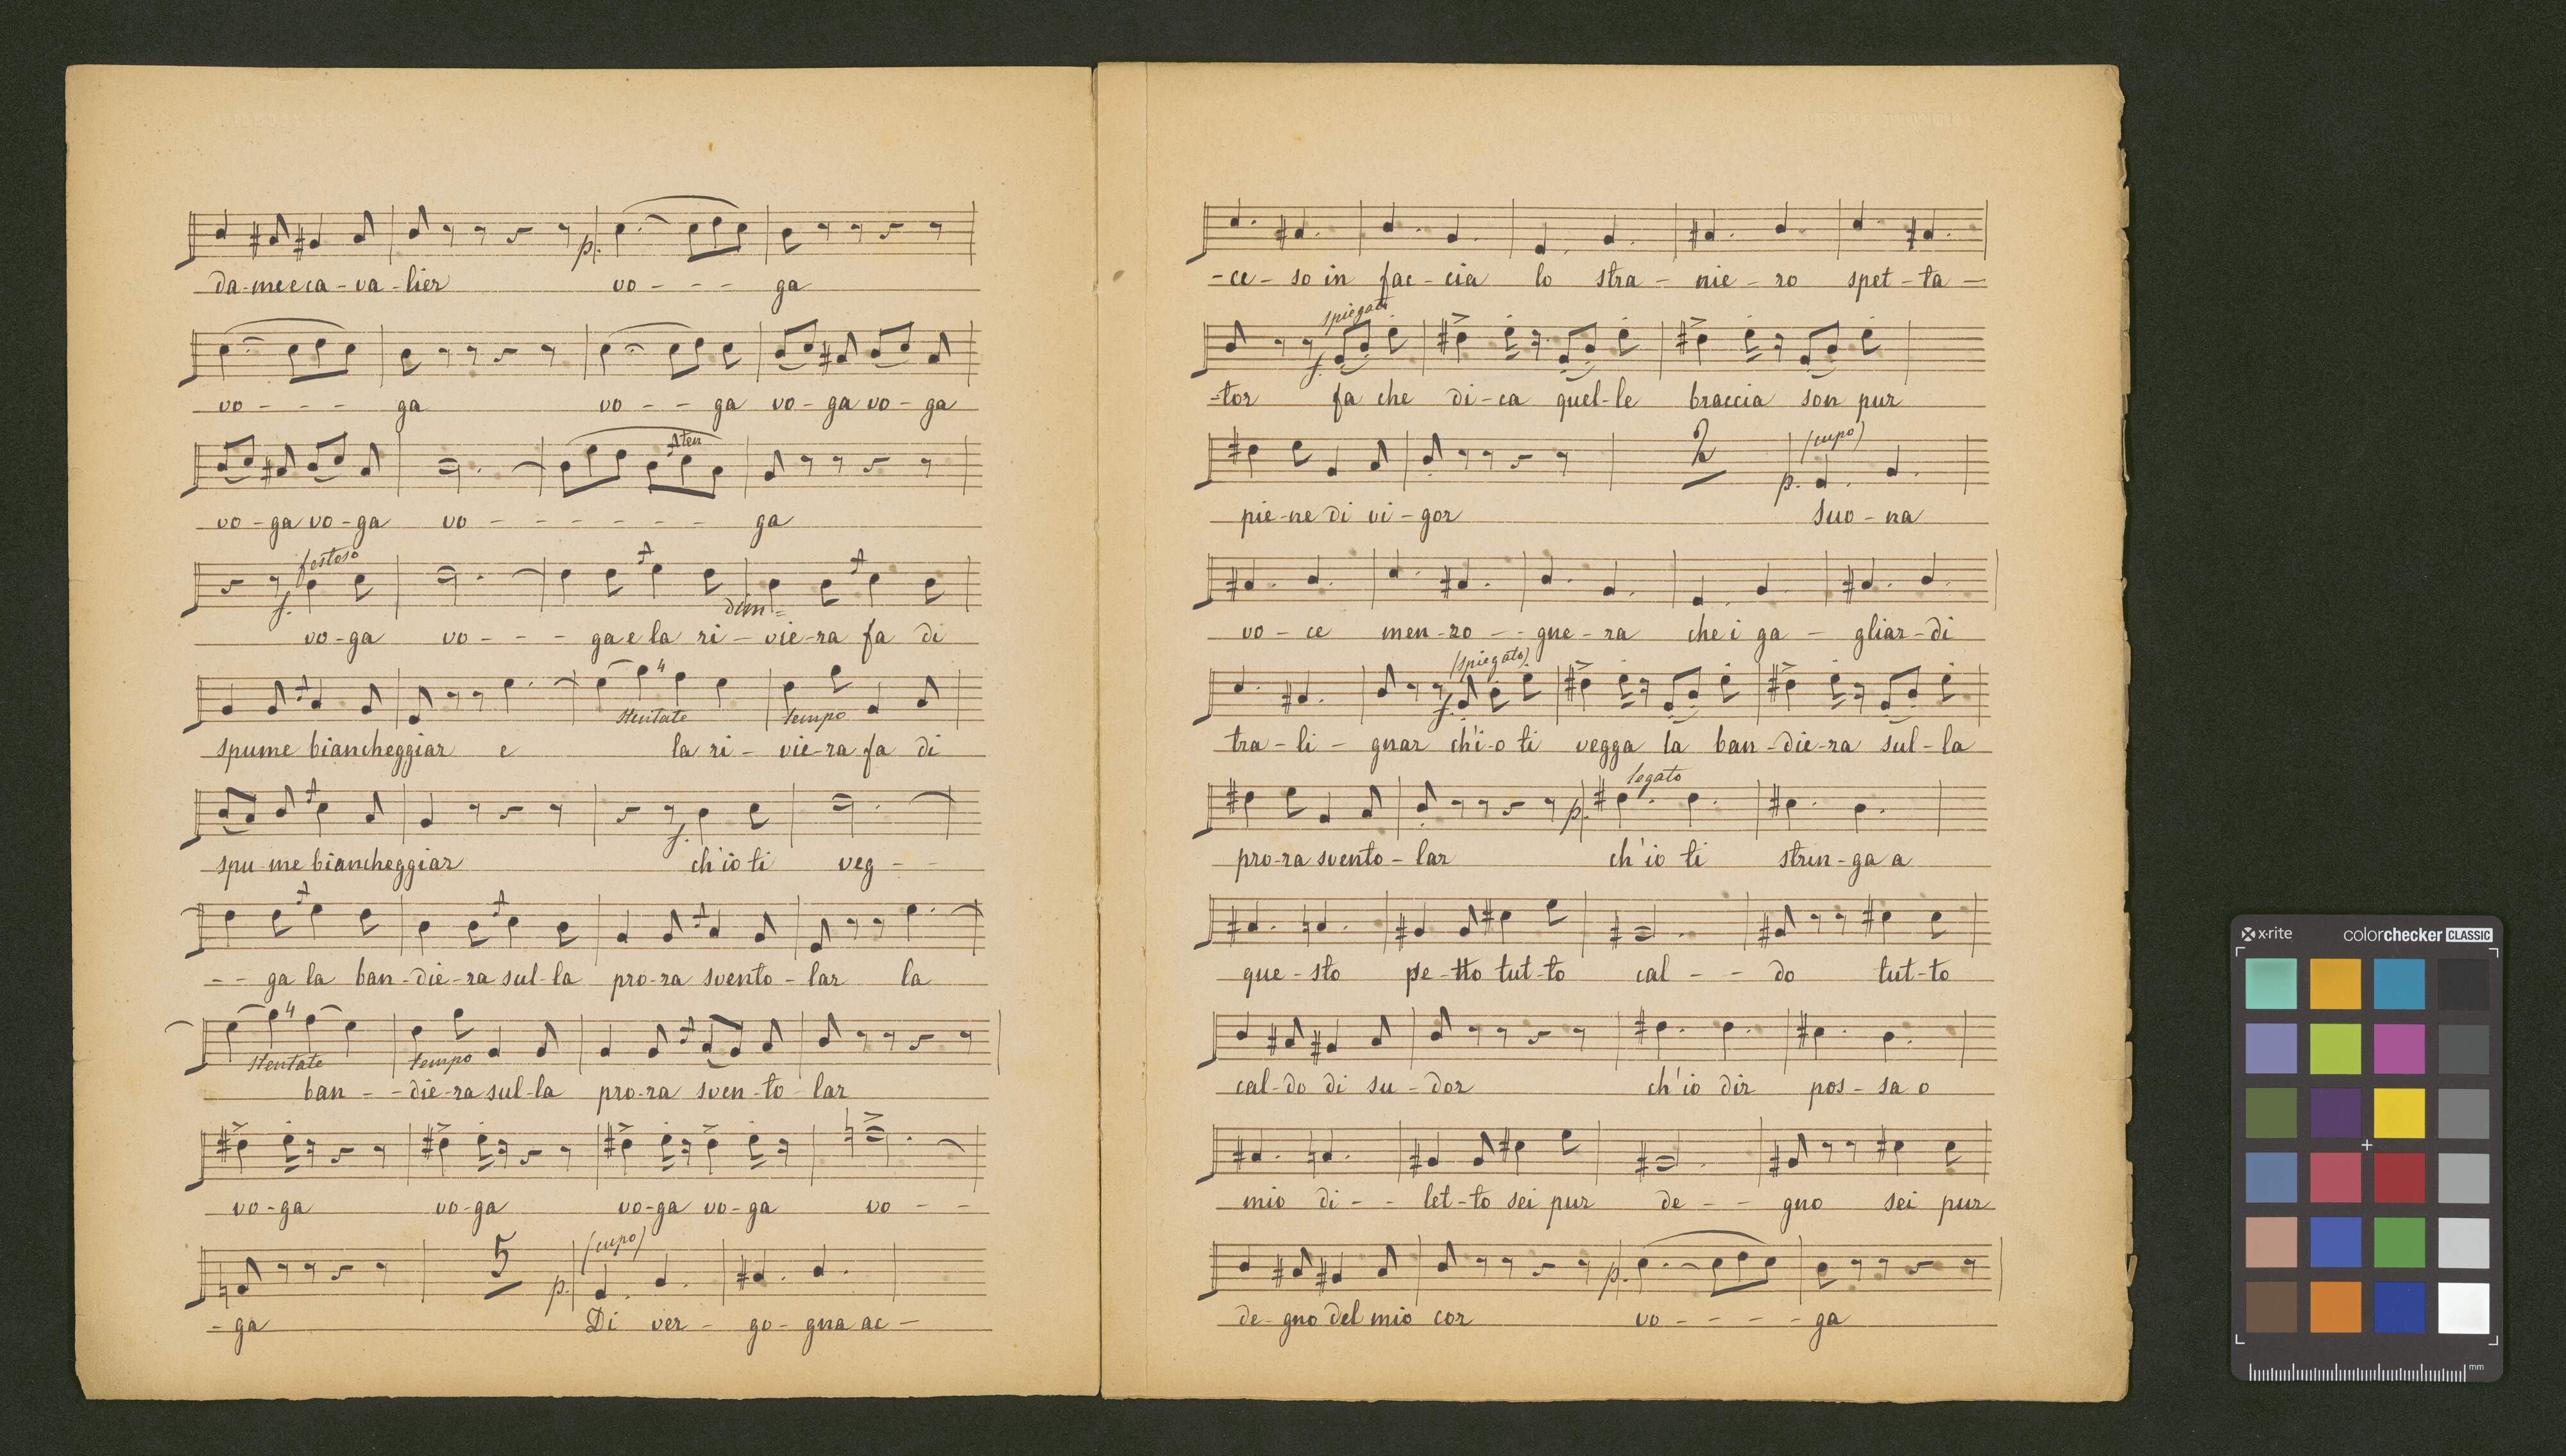 p.
da-me e ca-va-lier vo - - - ga
vo - - - ga vo - - ga vo-ga vo-ga
ten
vo-ga vo-ga vo - - - - - - ga
festoso
f. dim=
vo-ga vo - - - ga e la ri-vie-ra fa di
4
stentate tempo
spume biancheggiar e la ri-vie-ra fa di
f.
spu-me biancheggiar ch'io ti veg - -
- - ga la ban-die-ra sul-la pro-ra svento-lar la
4
stentate tempo
ban - - die-ra sul-la pro-ra sven-to-lar
vo-ga vo-ga vo-ga vo-ga vo - -
5 (cupo)
p.
- ga Di ver-go-gna ac -
- ce-so in fac-cia lo stra-nie-ro spet-ta -
spiegato
f.
-tor fa che di-ca quel-le braccia son pur
2 (cupo)
p.
pie-ne di vi-gor suo-na
vo-ce men-zo - - gne-ra che i ga - gliar-di
(spiegato)
f.
tra-li-gnar ch'i-o ti vegga la ban-die-ra sul-la
legato
p.
pro-ra svento-lar ch'io ti strin-ga a
que-sto pe-tto tut-to cal - - do tut-to
cal-do di su-dor ch'io dir pos-sa o
mio di - - let-to sei pur de - - gno sei pur
p.
de-gno del mio cor vo - - - - ga
x-rite colorchecker CLASSIC
mm